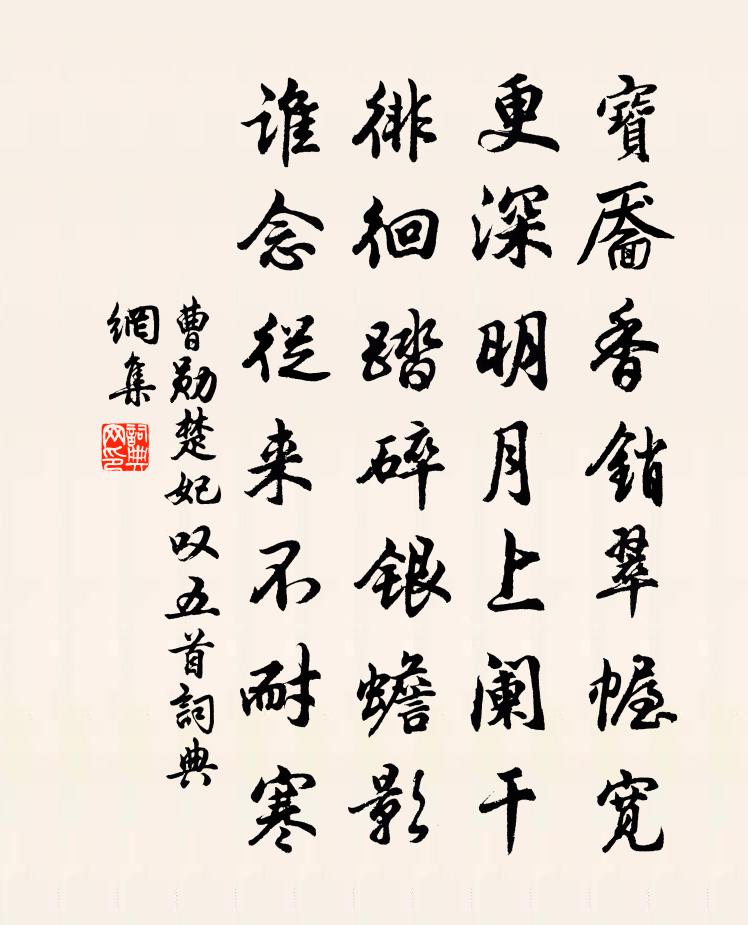 寶靥香銷翠幄寬
更深明月上阑干
徘徊踏碎銀蟾影
谁念從来不耐寒
曹勋楚妃叹五首詞典
網集
詞典
网印